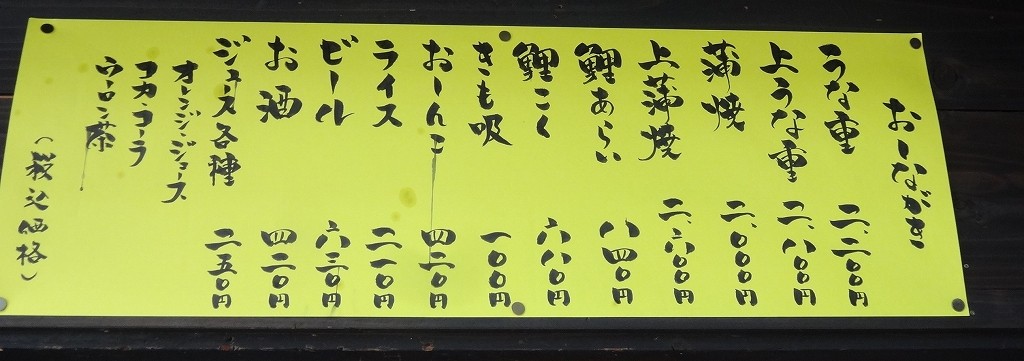 おしながき
うな重 二、二〇〇円
上うな重 二、八〇〇円
蒲焼 二、〇〇〇円
上蒲焼 二、六〇〇円
鯉あらい 八四〇円
鯉こく 六八〇円
きも吸 一〇〇円
おしんこ 四二〇円
ライス 二一〇円
ビール 六三〇円
お酒 四二〇円
ジュース各種 二五〇円
オレンジ・ジュース
コカ・コーラ
ウーロン茶
（税込価格）